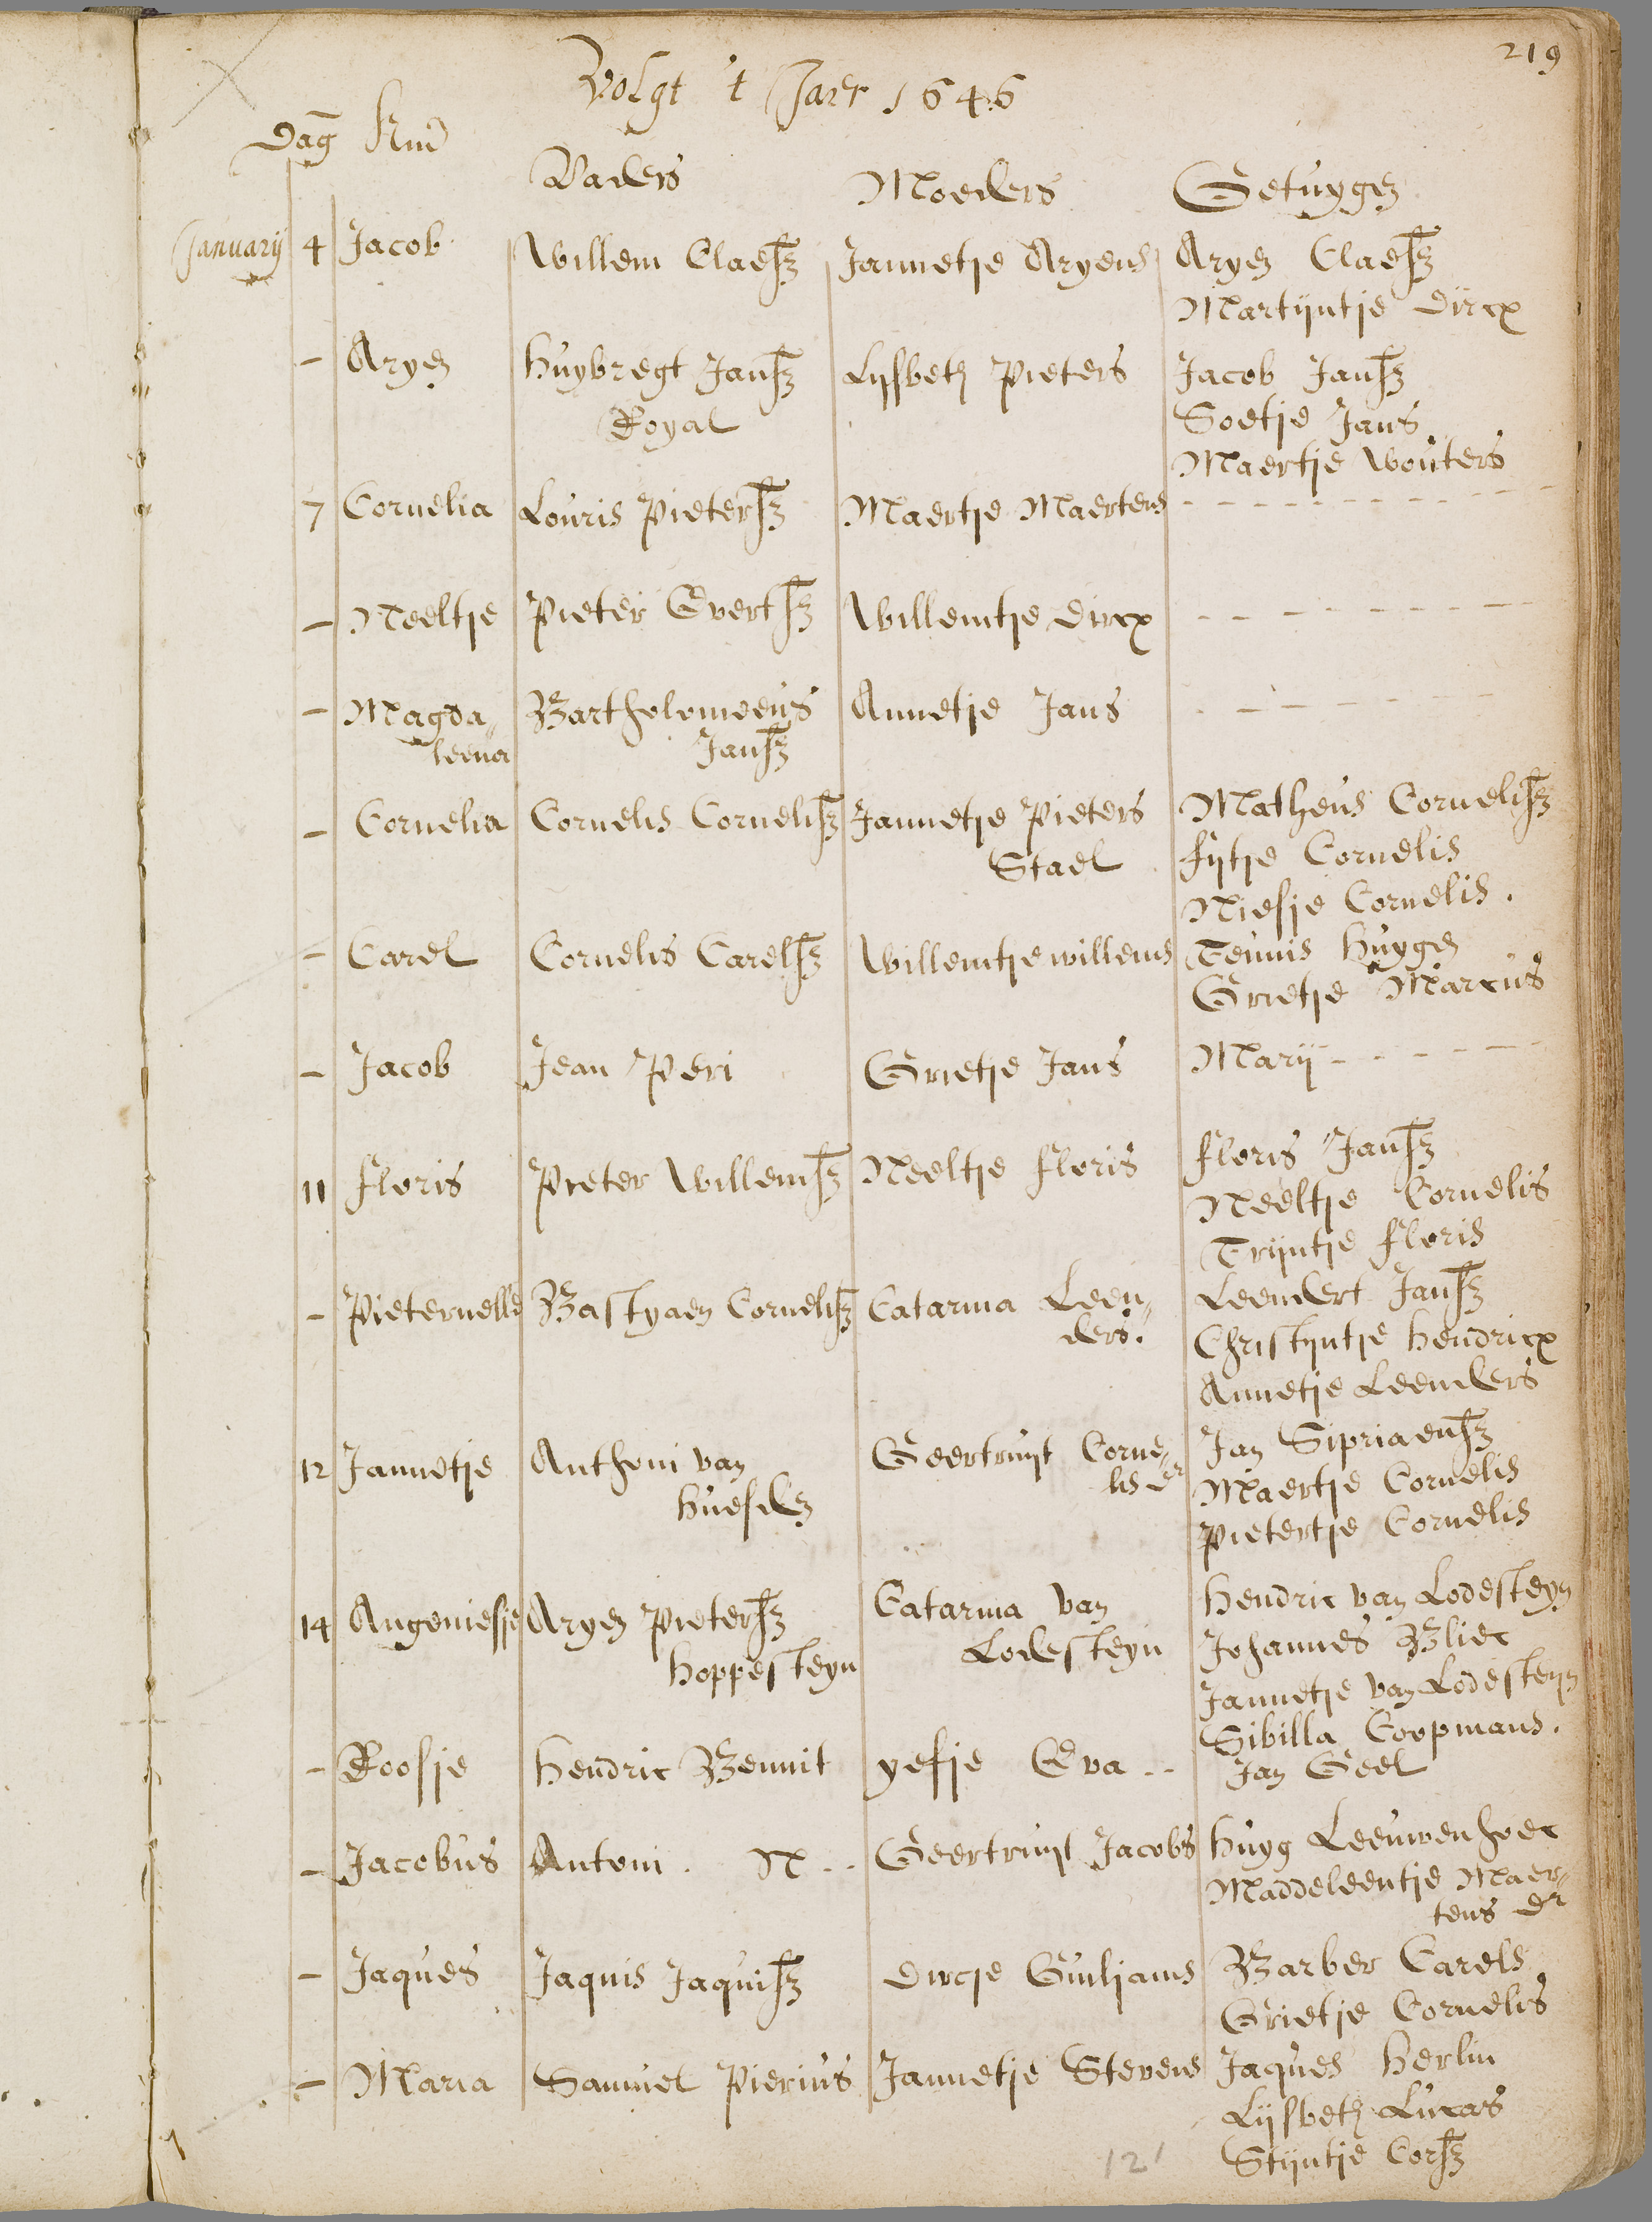 219
Volgt 't Jaer 1646
Dag Kind Vaders Moeders Getuygen
January 4 Jacob Willem Claesz Jannetje Aryens Aryen Claesz
Martijntje Dircx
- Aryen Huybregt Jansz Lysbeth Pieters Jacob Jansz
Royal Soetje Jans
Maertje Wouters
7 Cornelia Louris Pietersz Maertje Maertens - - - - - - - - - -
- Neeltje Pieter Evertsz Willemtje Dircx - - - - - - - -
- Magda- Bartholomeeus Annetje Jans - - - - - - -
leena Jansz
- Cornelia Cornelis Cornelisz Jannetje Pieters Matheus Cornelisz
Stael fijtje Cornelis
Niesje Cornelis.
- Carel Cornelis Carelsz Willemtje willems Teunis Huygen
Grietje Marcus
- Jacob Jean Peri Grietje Jans Marij - - - - - -
11 floris Pieter Willemsz Neeltje floris floris Jansz
Neeltje Cornelis
Trijntje floris
- Pieternelle Bastyaen Cornelisz Catarina Leen- Leendert Jansz
ders. Christijntje Hendricx
Annetje Leenders
12 Jannetje Anthoni van Geertruyt Corne- Jan Sipriaensz
lis dr Maertje Cornelis
Pietertje Cornelis
14 Angeniesje Aryen Pietersz Catarina van Hendric van Lodesteyn
Hoppesteyn Lodesteyn Johannes Bliec
Jannetje van Lodesteyn
Sibilla Coopmans.
- Roosje Hendric Bennit yefje Eva .. Jan Geel
- Jacobus Antoni . N .. Geertruyt Jacobs Huyg Leeuwenhoec
Maddeleentje Maer-
tens dr
- Jaques Jaquis Jaquisz Dircje Guiljams Barber Carels
Grietje Cornelis
- Maria Samuel Pierius Jannetje Stevens Jaques Herlin
Lijsbeth Lucas
121 Stijntje Corsz